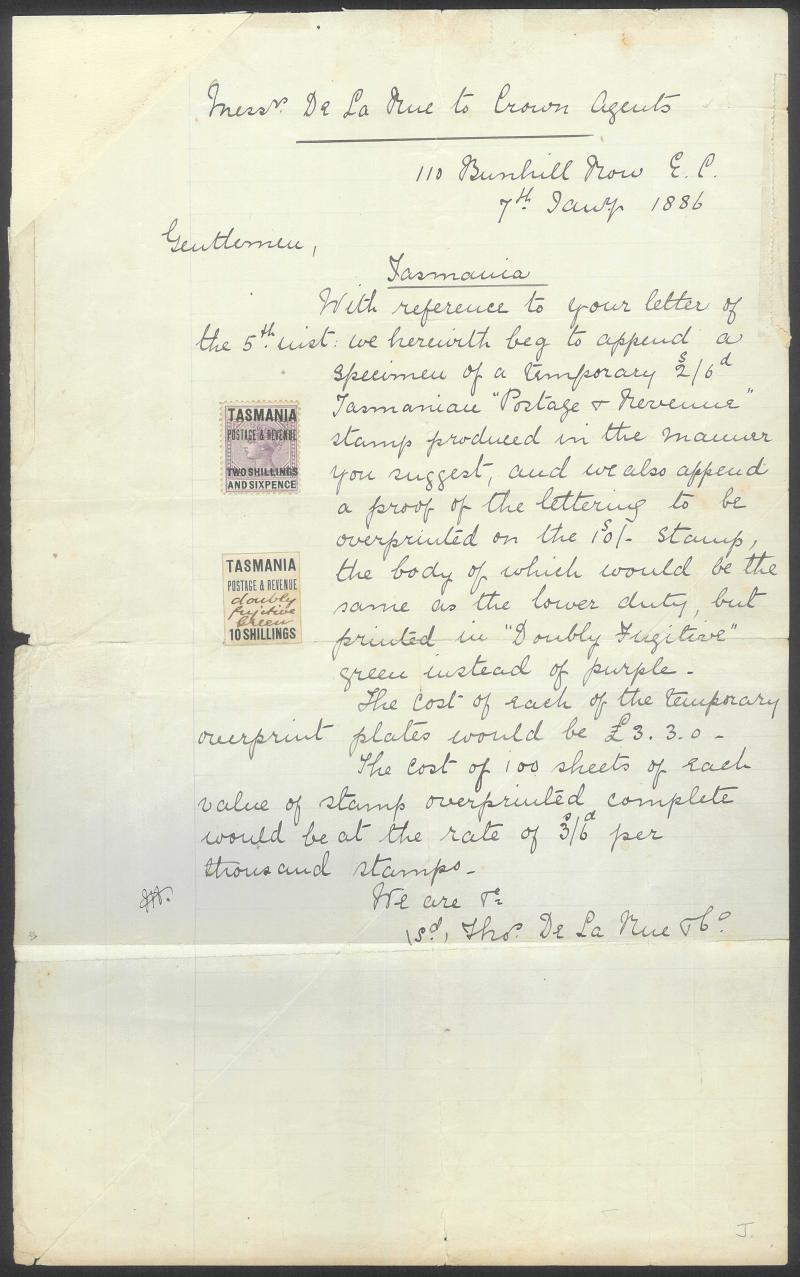 Messrs. De La Rue to Crown Agents
110 Bunhill Row E. C.
7th Jany 1886
Gentlemen,
Tasmania
With reference to your letter of
the 5th inst: we herewith beg to append a
specimen of a temporary 2s/6d
Tasmanian "Postage & Revenue"
stamp produced in the manner
you suggest, and we also append
a proof of the lettering to be
overprinted on the 10s/- stamp,
the body of which would be the
same as the lower duty, but
printed in "Doubly Fugitive"
green instead of purple -
The cost of each of the temporary
overprint plates would be £3.3.0 -
The cost of 100 sheets of each
value of stamp overprinted complete
would be at the rate of 3s/6d per
thousand stamps -
We are &c
(sd) Thos. De La Rue & Co
TASMANIA
POSTAGE & REVENUE
TWO SHILLINGS
AND SIXPENCE
TASMANIA
POSTAGE & REVENUE
doubly
fugitive
Green
10 SHILLINGS
J.